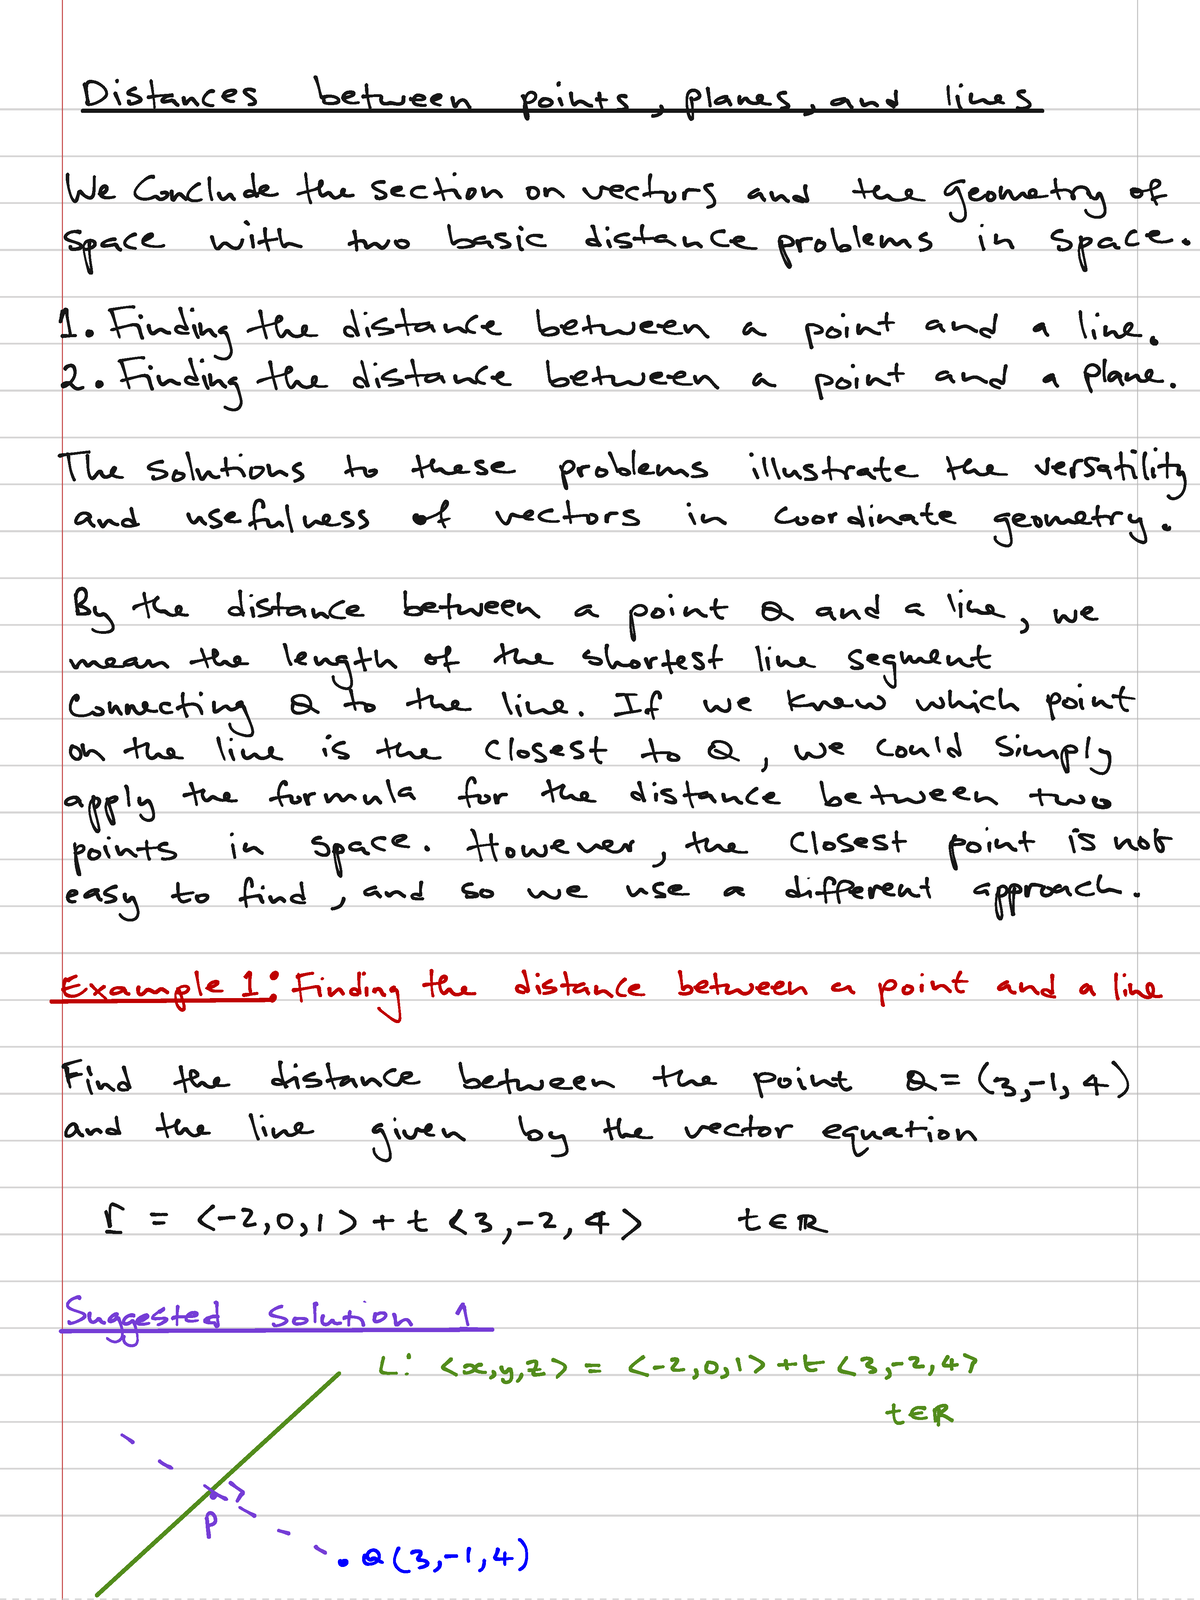 Distances between points, planes, and lines
We Conclude the section on vectors and the geometry of
space with two basic distance problems in space.
1. Finding the distance between a point and a line.
2. Finding the distance between a point and a plane.
The solutions to these problems illustrate the versatility
and usefulness of vectors in coordinate geometry.
By the distance between a point Q and a line, we
mean the length of the shortest line segment
Connecting Q to the line. If we knew which point
on the line is the closest to Q, we could simply
apply the formula for the distance between two
points in space. However, the closest point is not
easy to find, and so we use a different approach.
Example 1: Finding the distance between a point and a line
Find the distance between the point Q = (3,-1, 4)
and the line given by the vector equation
r = <-2,0,1> + t <3,-2,4> t∈ℝ
Suggested Solution 1
L: <x,y,z> = <-2,0,1> + t <3,-2,4>
t∈ℝ
P
Q(3,-1,4)